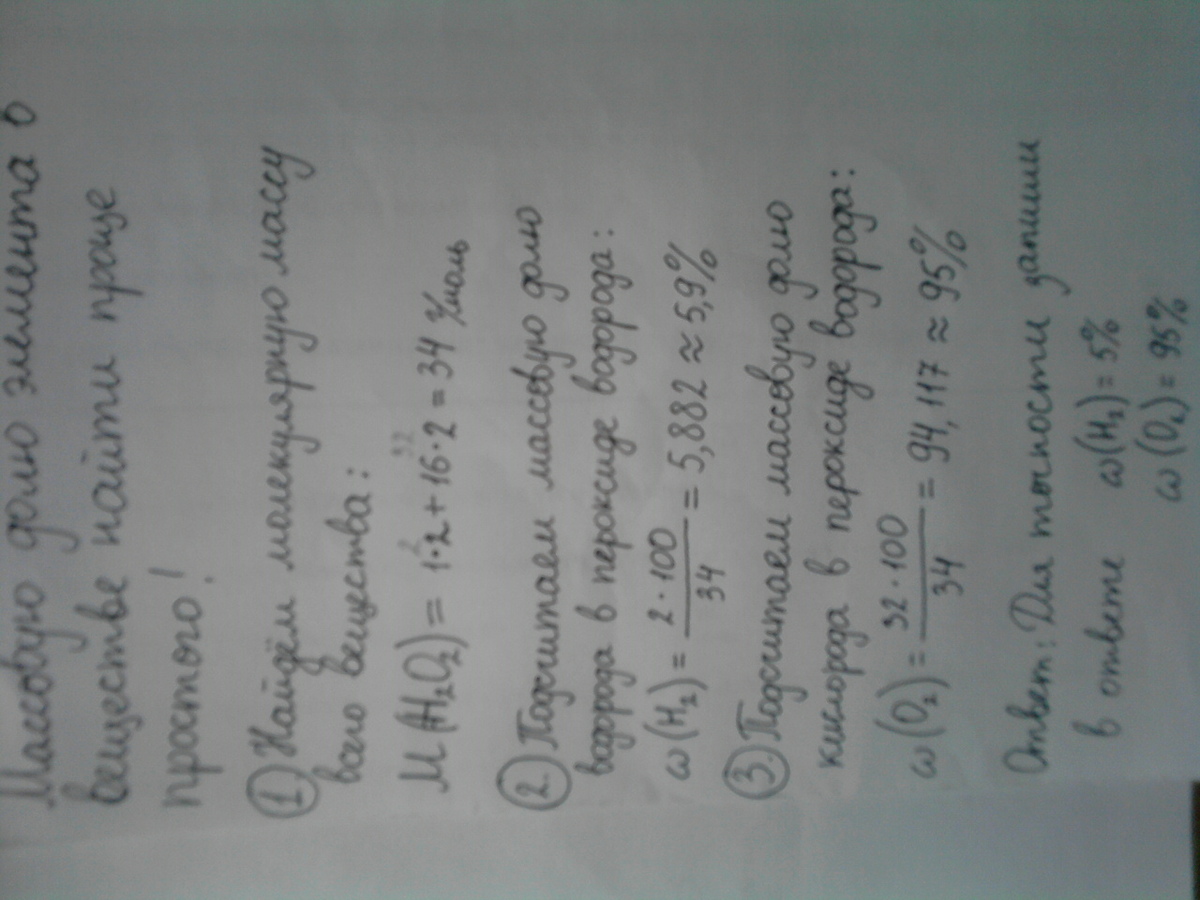 Массовую долю элемента в
веществе найти проще
простого!
① Найдём молекулярную массу
всего вещества:
M(H₂O₂) = 1·2 + 16·2 = 34 г/моль
2 32
② Подсчитаем массовую долю
водорода в пероксиде водорода:
ω(H₂) = 2·100/34 = 5,882 ≈ 5,9%
③ Подсчитаем массовую долю
кислорода в пероксиде водорода:
ω(O₂) = 32·100/34 = 94,117 ≈ 95%
Ответ: Для точности запиши
в ответе ω(H₂) = 5%
ω(O₂) = 95%